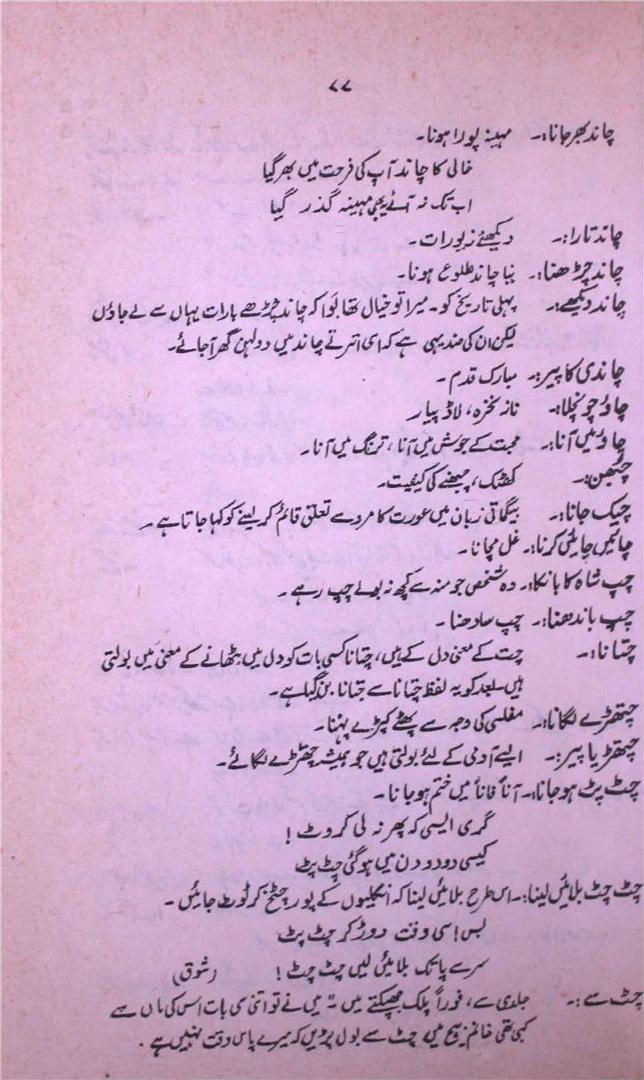 ۷۷
چاند بھر جانا:۔ مہینہ پورا ہونا۔
خالی کا چاند آپ کی فرحت میں بھر گیا
اب تک نہ آئے یجی مہینہ گذر گیا
چاند تارا:۔ دیکھئے زیورات۔
چاند چڑھنا:۔ نیا چاند طلوع ہونا۔
چاند دیکھے:۔ پہلی تاریخ کو۔ میرا تو خیال تھا بُوا کہ چاند چڑھے بارات یہاں سے لے جاؤں
لیکن ان کی ضد یہی ہے کہ اسی اترتے چاند میں دولہن گھر آجائے۔
چاندی کا پیر:۔ مبارک قدم۔
چاؤ چونچلا:۔ ناز نخرہ، لاڈ پیار
چاؤ میں آنا:۔ محبت کے جوش میں آنا، ترنگ میں آنا۔
چبھن:۔ کھٹک، چبھنے کی کیفیت۔
چپک جانا:۔ بیگماتی زبان میں عورت کا مرد سے تعلق قائم کر لینے کو کہا جاتا ہے۔
چائیں چائیں کرنا:۔ غل مچانا۔
چپ شاہ کا بانکا:۔ وہ شخص جو منہ سے کچھ نہ بولے چپ رہے۔
چپ باندھنا:۔ چپ سادھنا۔
چتانا:۔ چت کے معنی دل کے ہیں، چتانا کسی بات کو دل میں بٹھانے کے معنی میں بولتی
ہیں۔ بعد کو یہ لفظ چتانا سے جتانا بن گیا ہے۔
چتھڑے لگانا:۔ مفلسی کی وجہ سے پھٹے کپڑے پہننا۔
چتھڑیا پیر:۔ ایسے آدمی کے لئے بولتی ہیں جو ہمیشہ چتھڑے لگائے۔
چٹ پٹ ہو جانا:۔ آناً فاناً میں ختم ہو جانا۔
گری ایسی کہ پھر نہ لی کروٹ!
کیسی دو دو دن میں ہو گئی چٹ پٹ
چٹ چٹ بلائیں لینا:۔ اس طرح بلائیں لینا کہ انگلیوں کے پور چٹخ کر ٹوٹ جائیں۔
بس اسی وقت دوڑ کر چٹ پٹ
سر سے پا تک بلائیں لیں چٹ چٹ! (شوق)
چٹ سے:۔ جلدی سے، فوراً پلک جھپکتے میں۔ "میں نے تو اتنی سی بات اس کی ماں سے
کہی تھی خانم بیچ میں چٹ سے بول پڑیں کہ میرے پاس وقت نہیں ہے۔